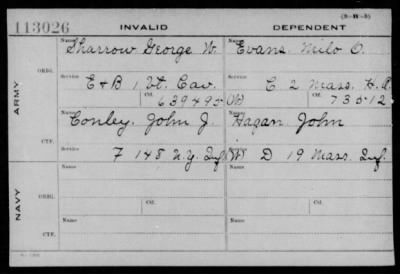 (3-H-3)
113026 INVALID DEPENDENT
Name Name
Sharrow George W. Evans. Milo O.
ARMY ORIG. Service Service
E & B 1 Vt. Cav. C. 2 Mass. H. A.
Ctf. 639495 Ctf. 73512
Name Name
Conley, John J. Hagan John
CTF. Service
F 148 N.Y. Inf. (W) D 19 Mass. Inf.
Name Name
NAVY ORIG. Ctf. Ctf.
Name Name
CTF.